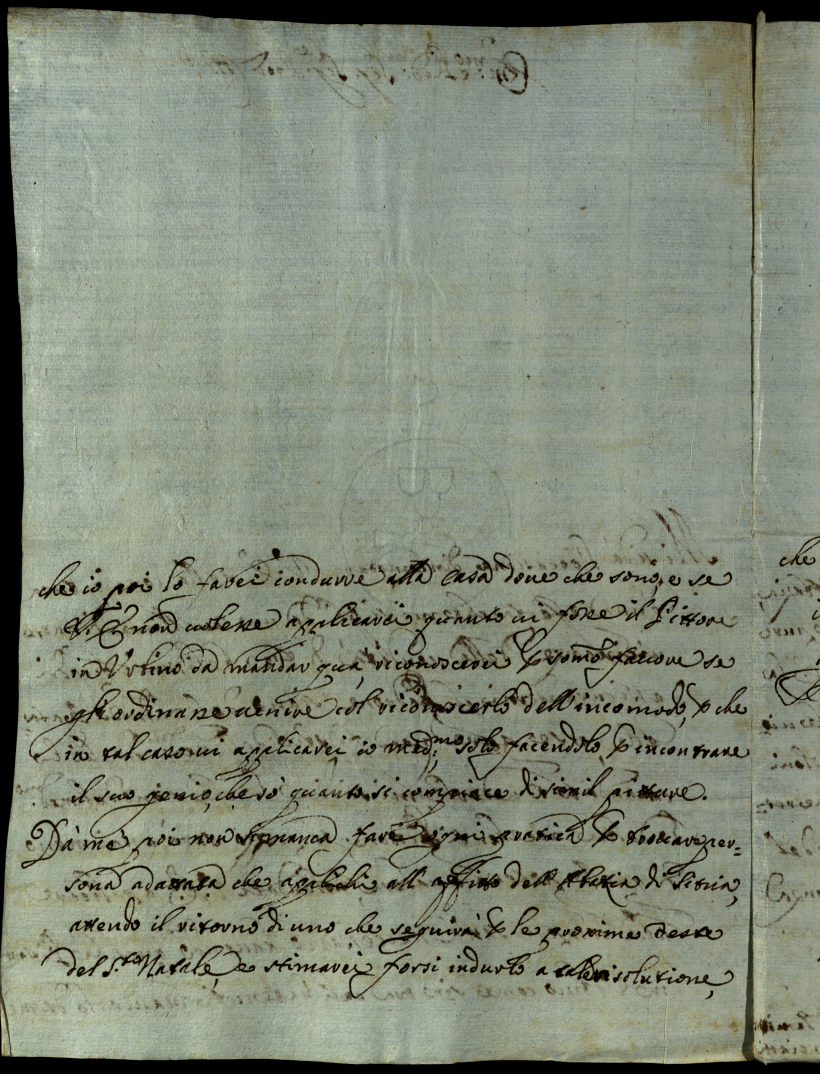 che io poi lo farei condurre alla casa doue che sono, e se
V. E. non uolesse applicarci quanto ui fosse il Pittore
in Vrbino da mandar qua' riconoscerei p somo fauore se
gli ordinasse uenire col riconoscerlo dell'incomodo, p che
in tal caso ui applicarei io med.mo solo facendolo p incontrare
il suo genio, che so' quanto si compiace di simil pitture.
Da' me poi non si manca fare ogni pratica p trouare per=
sona adattata che applichi all'affitto dell'Abatia di Sitria,
attendo il ritorno di uno che seguira' p le prossime Feste
del S.to Natale, e stimarei forsi indurlo a tal risolutione,
che